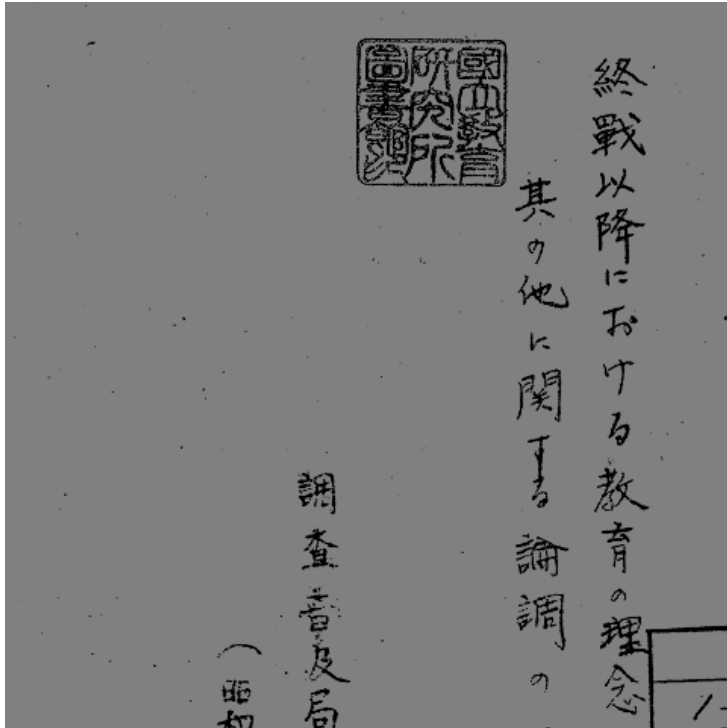 終戰以降における教育の理念
其の他に関する論調の
國立教育
研究所
圖書館印
調査普及局
（昭和